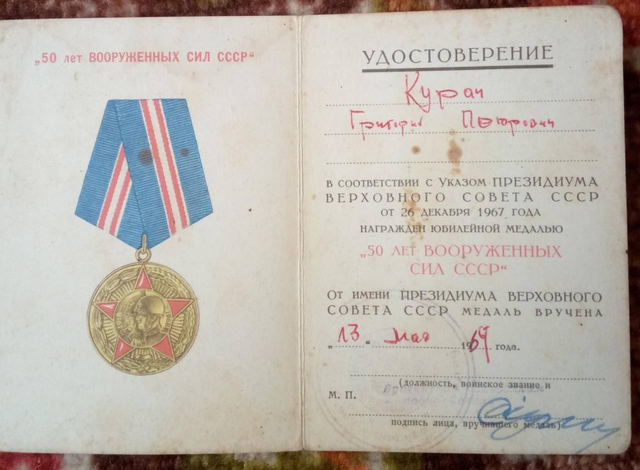 „50 лет ВООРУЖЕННЫХ СИЛ СССР“
УДОСТОВЕРЕНИЕ
Курач
Григорий Петрович
В СООТВЕТСТВИИ С УКАЗОМ ПРЕЗИДИУМА
ВЕРХОВНОГО СОВЕТА СССР
ОТ 26 ДЕКАБРЯ 1967 ГОДА
НАГРАЖДЕН ЮБИЛЕЙНОЙ МЕДАЛЬЮ
„50 ЛЕТ ВООРУЖЕННЫХ
СИЛ СССР“
ОТ ИМЕНИ ПРЕЗИДИУМА ВЕРХОВНОГО
СОВЕТА СССР МЕДАЛЬ ВРУЧЕНА
„13“ мая 1969 года.
(должность, воинское звание и
М. П.
подпись лица, вручившего медаль)